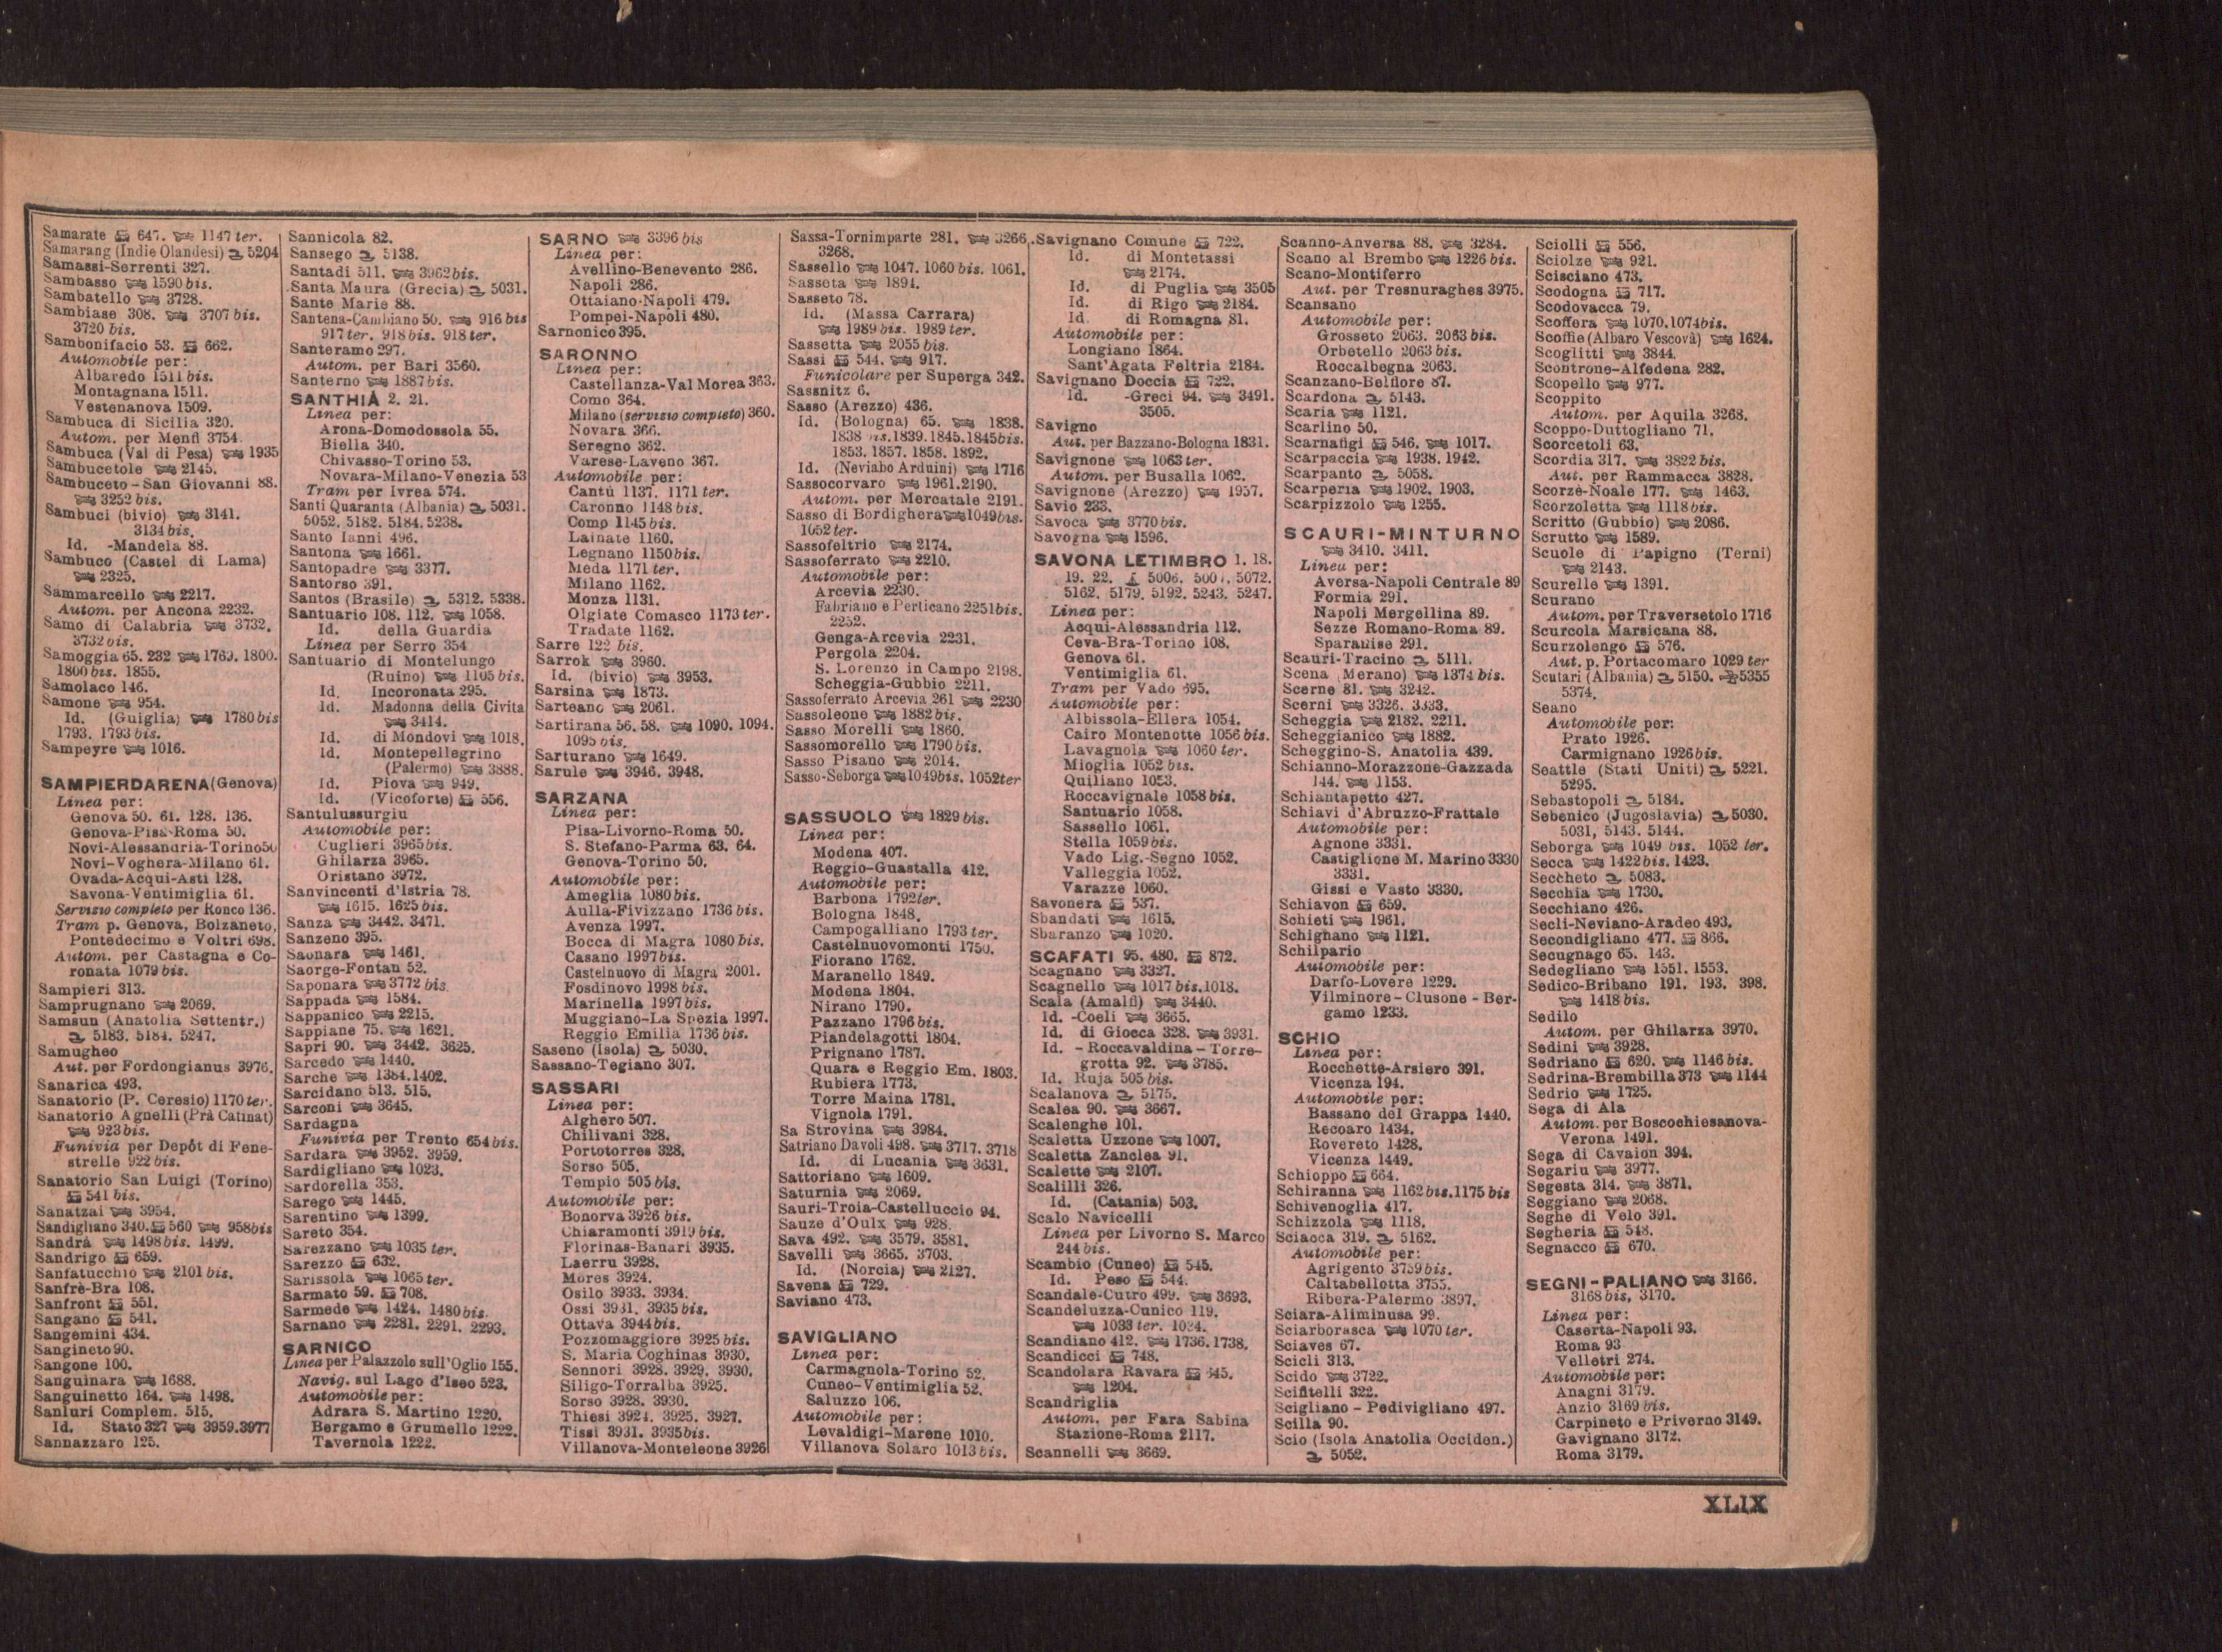 Samarate 647. 1147 ter.
Samarang (Indie Olandesi) 5204
Samassi-Serrenti 327.
Sambasso 1590 bis.
Sambatello 3728.
Sambiase 308. 3707 bis.
3720 bis.
Sambonifacio 53. 662.
Automobile per:
Albaredo 1511 bis.
Montagnana 1511.
Vestenanova 1509.
Sambuca di Sicilia 320.
Autom. per Menfi 3754.
Sambuca (Val di Pesa) 1935
Sambucetole 2145.
Sambuceto-San Giovanni 88.
3252 bis.
Sambuci (bivio) 3141.
3134 bis.
Id. -Mandela 88.
Sambuco (Castel di Lama)
2325.
Sammarcello 2217.
Autom. per Ancona 2232.
Samo di Calabria 3732.
3732 bis.
Samoggia 65. 232 1769. 1800.
1800 bis. 1855.
Samolaco 146.
Samone 954.
Id. (Guiglia) 1780 bis
1793. 1793 bis.
Sampeyre 1016.
SAMPIERDARENA (Genova)
Linea per:
Genova 50. 61. 128. 136.
Genova-Pisa-Roma 50.
Novi-Alessandria-Torino 50
Novi-Voghera-Milano 61.
Ovada-Acqui-Asti 128.
Savona-Ventimiglia 61.
Servizio completo per Ronco 136.
Tram p. Genova, Bolzaneto,
Pontedecimo e Voltri 698.
Autom. per Castagna e Co-
ronata 1079 bis.
Sampieri 313.
Samprugnano 2069.
Samsun (Anatolia Settentr.)
5183. 5184. 5247.
Samugheo
Aut. per Fordongianus 3976.
Sanarica 493.
Sanatorio (P. Ceresio) 1170 ter.
Sanatorio Agnelli (Prà Catinat)
923 bis.
Funivia per Depôt di Fene-
strelle 922 bis.
Sanatorio San Luigi (Torino)
541 bis.
Sanatzai 3954.
Sandigliano 340. 560 958 bis
Sandrà 1498 bis. 1499.
Sandrigo 659.
Sanfatucchio 2101 bis.
Sanfrè-Bra 108.
Sanfront 551.
Sangano 541.
Sangemini 434.
Sangineto 90.
Sangone 100.
Sanguinara 1688.
Sanguinetto 164. 1498.
Sanluri Complem. 515.
Id. Stato 327 3959.3977
Sannazzaro 125.
Sannicola 82.
Sansego 5138.
Santadi 511. 3962 bis.
Santa Maura (Grecia) 5031.
Sante Marie 88.
Santena-Cambiano 50. 916 bis
917 ter. 918 bis. 918 ter.
Santeramo 297.
Autom. per Bari 3560.
Santerno 1887 bis.
SANTHIÀ 2. 21.
Linea per:
Arona-Domodossola 55.
Biella 340.
Chivasso-Torino 53.
Novara-Milano-Venezia 53
Tram per Ivrea 574.
Santi Quaranta (Albania) 5031.
5052. 5182. 5184. 5238.
Santo Ianni 496.
Santona 1661.
Santopadre 3377.
Santorso 391.
Santos (Brasile) 5312. 5338.
Santuario 108. 112. 1058.
Id. della Guardia
Linea per Serro 354
Santuario di Montelungo
(Ruino) 1105 bis.
Id. Incoronata 295.
Id. Madonna della Civita
3414.
Id. di Mondovì 1018.
Id. Montepellegrino
(Palermo) 3888.
Id. Piova 949.
Id. (Vicoforte) 556.
Santulussurgiu
Automobile per:
Cuglieri 3965 bis.
Ghilarza 3965.
Oristano 3972.
Sanvincenti d'Istria 78.
1615. 1625 bis.
Sanza 3442. 3471.
Sanzeno 395.
Saonara 1461.
Saorge-Fontan 52.
Saponara 3772 bis
Sappada 1584.
Sappanico 2215.
Sappiane 75. 1621.
Sapri 90. 3442. 3625.
Sarcedo 1440.
Sarche 1384.1402.
Sarcidano 513. 515.
Sarconi 3645.
Sardagna
Funivia per Trento 654 bis.
Sardara 3952. 3959.
Sardigliano 1023.
Sardorella 353.
Sarego 1445.
Sarentino 1399.
Sareto 354.
Sarezzano 1035 ter.
Sarezzo 632.
Sarissola 1065 ter.
Sarmato 59. 708.
Sarmede 1424. 1480 bis.
Sarnano 2281. 2291. 2293.
SARNICO
Linea per Palazzolo sull'Oglio 155.
Navig. sul Lago d'Iseo 523.
Automobile per:
Adrara S. Martino 1220.
Bergamo e Grumello 1222.
Tavernola 1222.
SARNO 3396 bis
Linea per:
Avellino-Benevento 286.
Napoli 286.
Ottaiano-Napoli 479.
Pompei-Napoli 480.
Sarnonico 395.
SARONNO
Linea per:
Castellanza-Val Morea 363.
Como 364.
Milano (servizio completo) 360.
Novara 366.
Seregno 362.
Varese-Laveno 367.
Automobile per:
Cantù 1137. 1171 ter.
Caronno 1148 bis.
Como 1145 bis.
Lainate 1160.
Legnano 1150 bis.
Meda 1171 ter.
Milano 1162.
Monza 1131.
Olgiate Comasco 1173 ter.
Tradate 1162.
Sarre 122 bis.
Sarrok 3960.
Id. (bivio) 3953.
Sarsina 1873.
Sarteano 2061.
Sartirana 56. 58. 1090. 1094.
1095 bis.
Sarturano 1649.
Sarule 3946. 3948.
SARZANA
Linea per:
Pisa-Livorno-Roma 50.
S. Stefano-Parma 63. 64.
Genova-Torino 50.
Automobile per:
Ameglia 1080 bis.
Aulla-Fivizzano 1736 bis.
Avenza 1997.
Bocca di Magra 1080 bis.
Casano 1997 bis.
Castelnuovo di Magra 2001.
Fosdinovo 1998 bis.
Marinella 1997 bis.
Muggiano-La Spezia 1997.
Reggio Emilia 1736 bis.
Saseno (Isola) 5030.
Sassano-Tegiano 307.
SASSARI
Linea per:
Alghero 507.
Chilivani 328.
Portotorres 328.
Sorso 505.
Tempio 505 bis.
Automobile per:
Bonorva 3926 bis.
Chiaramonti 3919 bis.
Florinas-Banari 3935.
Laerru 3928.
Mores 3924.
Osilo 3933. 3934.
Ossi 3931. 3935 bis.
Ottava 3944 bis.
Pozzomaggiore 3925 bis.
S. Maria Coghinas 3930.
Sennori 3928. 3929. 3930.
Siligo-Torralba 3925.
Sorso 3928. 3930.
Thiesi 3924. 3925. 3927.
Tissi 3931. 3935 bis.
Villanova-Monteleone 3926
Sassa-Tornimparte 281. 3266.
3268.
Sassello 1047. 1060 bis. 1061.
Sasseta 1894.
Sasseto 78.
Id. (Massa Carrara)
1989 bis. 1989 ter.
Sassetta 2055 bis.
Sassi 544. 917.
Funicolare per Superga 342.
Sassnitz 6.
Sasso (Arezzo) 436.
Id. (Bologna) 65. 1838.
1838 bis.1839.1845.1845 bis.
1853. 1857. 1858. 1892.
Id. (Neviano Arduini) 1716
Sassocorvaro 1961.2190.
Autom. per Mercatale 2191.
Sasso di Bordighera 1049 bis.
1052 ter.
Sassofeltrio 2174.
Sassoferrato 2210.
Automobile per:
Arcevia 2230.
Fabriano e Perticano 2251 bis.
2252.
Genga-Arcevia 2231.
Pergola 2204.
S. Lorenzo in Campo 2198.
Scheggia-Gubbio 2211.
Sassoferrato Arcevia 261 2230
Sassoleone 1882 bis.
Sasso Morelli 1860.
Sassomorello 1790 bis.
Sasso Pisano 2014.
Sasso-Seborga 1049 bis. 1052 ter
SASSUOLO 1829 bis.
Linea per:
Modena 407.
Reggio-Guastalla 412.
Automobile per:
Barbona 1792 ter.
Bologna 1848.
Campogalliano 1793 ter.
Castelnuovomonti 1750.
Fiorano 1762.
Maranello 1849.
Modena 1804.
Nirano 1790.
Pazzano 1796 bis.
Piandelagotti 1804.
Prignano 1787.
Quara e Reggio Em. 1803.
Rubiera 1773.
Torre Maina 1781.
Vignola 1791.
Sa Strovina 3984.
Satriano Davoli 498. 3717. 3718
Id. di Lucania 3631.
Sattoriano 1609.
Saturnia 2069.
Sauri-Troia-Castelluccio 94.
Sauze d'Oulx 928.
Sava 492. 3579. 3581.
Savelli 3665. 3703.
Id. (Norcia) 2127.
Savena 729.
Saviano 473.
SAVIGLIANO
Linea per:
Carmagnola-Torino 52.
Cuneo-Ventimiglia 52.
Saluzzo 106.
Automobile per:
Levaldigi-Marene 1010.
Villanova Solaro 1013 bis.
Savignano Comune 722.
Id. di Montetassi
2174.
Id. di Puglia 3505
Id. di Rigo 2184.
Id. di Romagna 81.
Automobile per:
Longiano 1864.
Sant'Agata Feltria 2184.
Savignano Doccia 722.
Id. -Greci 94. 3491.
3505.
Savigno
Aut. per Bazzano-Bologna 1831.
Savignone 1063 ter.
Autom. per Busalla 1062.
Savignone (Arezzo) 1957.
Savio 233.
Savoca 3770 bis.
Savogna 1596.
SAVONA LETIMBRO 1. 18.
19. 22. 5006. 5007. 5072.
5162. 5179. 5192. 5243. 5247.
Linea per:
Acqui-Alessandria 112.
Ceva-Bra-Torino 108.
Genova 61.
Ventimiglia 61.
Tram per Vado 695.
Automobile per:
Albissola-Ellera 1054.
Cairo Montenotte 1056 bis.
Lavagnola 1060 ter.
Mioglia 1052 bis.
Quiliano 1053.
Roccavignale 1058 bis.
Santuario 1058.
Sassello 1061.
Stella 1059 bis.
Vado Lig.-Segno 1052.
Valleggia 1052.
Varazze 1060.
Savonera 537.
Sbandati 1615.
Sbaranzo 1020.
SCAFATI 95. 480. 872.
Scagnano 3327.
Scagnello 1017 bis.1018.
Scala (Amalfi) 3440.
Id. -Coeli 3665.
Id. di Giocca 328. 3931.
Id. - Roccavaldina - Torre-
grotta 92. 3785.
Id. Ruja 505 bis.
Scalanova 5175.
Scalea 90. 3667.
Scalenghe 101.
Scaletta Uzzone 1007.
Scaletta Zanclea 91.
Scalette 2107.
Scalilli 326.
Id. (Catania) 503.
Scalo Navicelli
Linea per Livorno S. Marco
244 bis.
Scambio (Cuneo) 545.
Id. Peso 544.
Scandale-Cutro 499. 3693.
Scandeluzza-Cunico 119.
1033 ter. 1034.
Scandiano 412. 1736.1738.
Scandicci 748.
Scandolara Ravara 645.
1204.
Scandriglia
Autom. per Fara Sabina
Stazione-Roma 2117.
Scannelli 3669.
Scanno-Anversa 88. 3284.
Scano al Brembo 1226 bis.
Scano-Montiferro
Aut. per Tresnuraghes 3975.
Scansano
Automobile per:
Grosseto 2063. 2063 bis.
Orbetello 2063 bis.
Roccalbegna 2063.
Scanzano-Belfiore 87.
Scardona 5143.
Scaria 1121.
Scarlino 50.
Scarnafigi 546. 1017.
Scarpaccia 1938. 1942.
Scarpanto 5058.
Scarperia 1902. 1903.
Scarpizzolo 1255.
SCAURI-MINTURNO
3410. 3411.
Linea per:
Aversa-Napoli Centrale 89
Formia 291.
Napoli Mergellina 89.
Sezze Romano-Roma 89.
Sparanise 291.
Scauri-Tracino 5111.
Scena (Merano) 1374 bis.
Scerne 81. 3242.
Scerni 3326. 3333.
Scheggia 2182. 2211.
Scheggianico 1882.
Scheggino-S. Anatolia 439.
Schianno-Morazzone-Gazzada
144. 1153.
Schiantapetto 427.
Schiavi d'Abruzzo-Frattale
Automobile per:
Agnone 3331.
Castiglione M. Marino 3330
3331.
Gissi e Vasto 3330.
Schiavon 659.
Schieti 1961.
Schignano 1121.
Schilpario
Automobile per:
Darfo-Lovere 1229.
Vilminore-Clusone-Ber-
gamo 1233.
SCHIO
Linea per:
Rocchette-Arsiero 391.
Vicenza 194.
Automobile per:
Bassano del Grappa 1440.
Recoaro 1434.
Rovereto 1428.
Vicenza 1449.
Schioppo 664.
Schiranna 1162 bis.1175 bis
Schivenoglia 417.
Schizzola 1118.
Sciacca 319. 5162.
Automobile per:
Agrigento 3759 bis.
Caltabellotta 3755.
Ribera-Palermo 3897.
Sciara-Aliminusa 99.
Sciarborasca 1070 ter.
Sciaves 67.
Scicli 313.
Scido 3722.
Scifitelli 322.
Scigliano - Pedivigliano 497.
Scilla 90.
Scio (Isola Anatolia Occiden.)
5052.
Sciolli 556.
Sciolze 921.
Scisciano 473.
Scodogna 717.
Scodovacca 79.
Scoffera 1070.1074 bis.
Scoffie (Albaro Vescovà) 1624.
Scoglitti 3844.
Scontrone-Alfedena 282.
Scopello 977.
Scoppito
Autom. per Aquila 3268.
Scoppo-Duttogliano 71.
Scorcetoli 63.
Scordia 317. 3822 bis.
Aut. per Rammacca 3828.
Scorzè-Noale 177. 1463.
Scorzoletta 1118 bis.
Scritto (Gubbio) 2086.
Scrutto 1589.
Scuole di Papigno (Terni)
2143.
Scurelle 1391.
Scurano
Autom. per Traversetolo 1716
Scurcola Marsicana 88.
Scurzolengo 576.
Aut. p. Portacomaro 1029 ter
Scutari (Albania) 5150. 5355
5374.
Seano
Automobile per:
Prato 1926.
Carmignano 1926 bis.
Seattle (Stati Uniti) 5221.
5295.
Sebastopoli 5184.
Sebenico (Jugoslavia) 5030.
5031, 5143. 5144.
Seborga 1049 bis. 1052 ter.
Secca 1422 bis. 1423.
Seccheto 5083.
Secchia 1730.
Secchiano 426.
Seclì-Neviano-Aradeo 493.
Secondigliano 477. 866.
Secugnago 65. 143.
Sedegliano 1551. 1553.
Sedico-Bribano 191. 193. 398.
1418 bis.
Sedilo
Autom. per Ghilarza 3970.
Sedini 3928.
Sedriano 620. 1146 bis.
Sedrina-Brembilla 373 1144
Sedrio 1725.
Sega di Ala
Autom. per Boscochiesanova-
Verona 1491.
Sega di Cavaion 394.
Segariu 3977.
Segesta 314. 3871.
Seggiano 2068.
Seghe di Velo 391.
Segheria 548.
Segnacco 670.
SEGNI-PALIANO 3166.
3168 bis, 3170.
Linea per:
Caserta-Napoli 93.
Roma 93
Velletri 274.
Automobile per:
Anagni 3179.
Anzio 3169 bis.
Carpineto e Priverno 3149.
Gavignano 3172.
Roma 3179.
XLIX